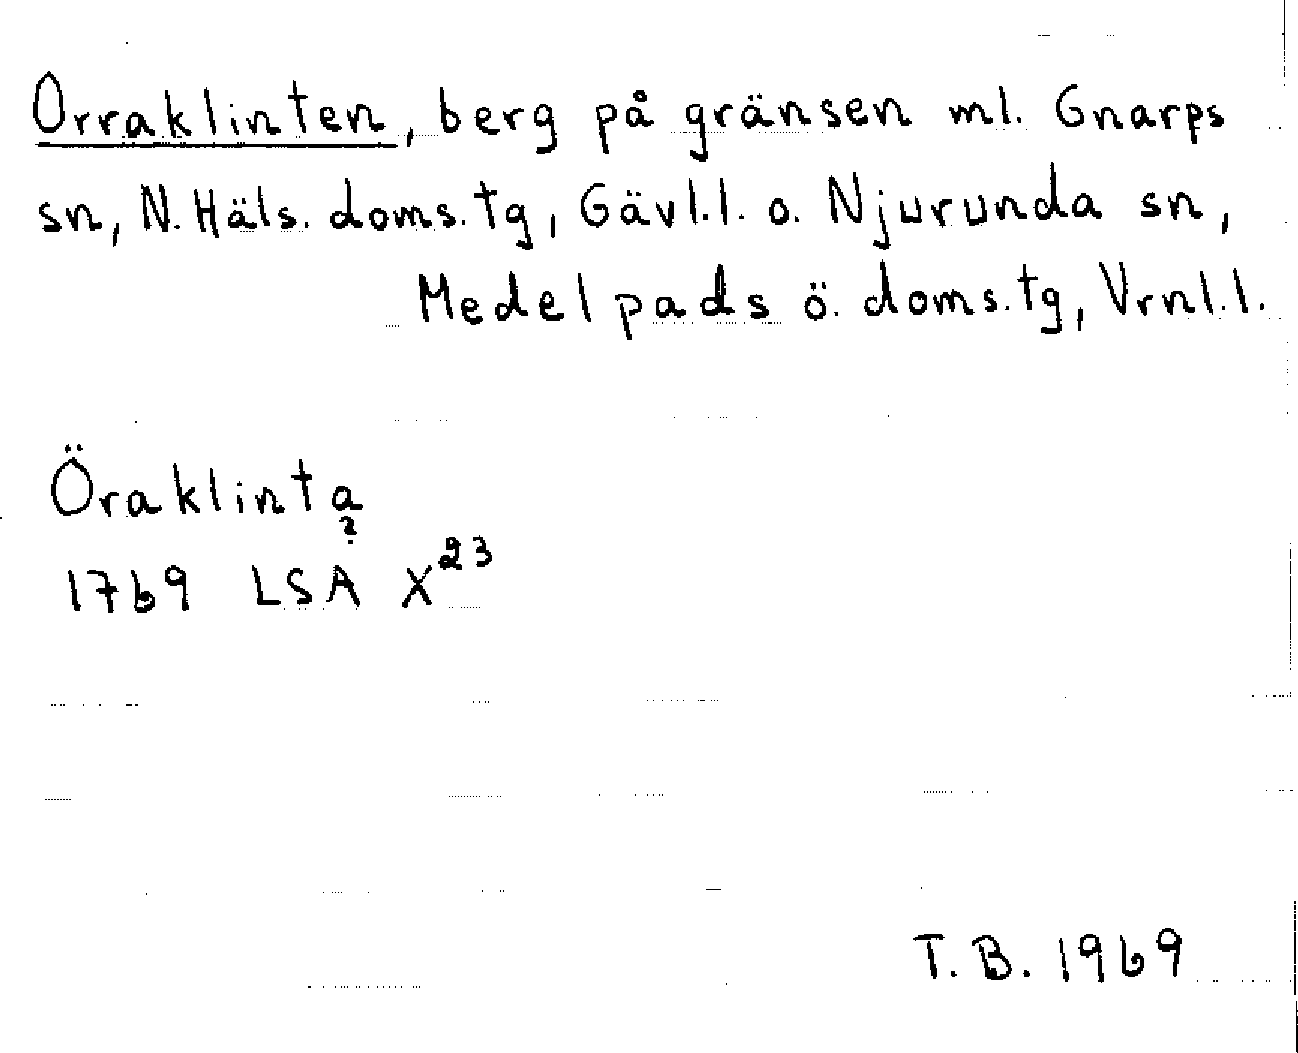 Orraklinten, berg på gränsen ml. Gnarps
sn, N. Häls. doms.tg, Gävl.l. o. Njurunda sn,
Medelpads ö. doms.tg, Vrnl.l.
Öraklinta
?
1769 LSA X23
T.B. 1969